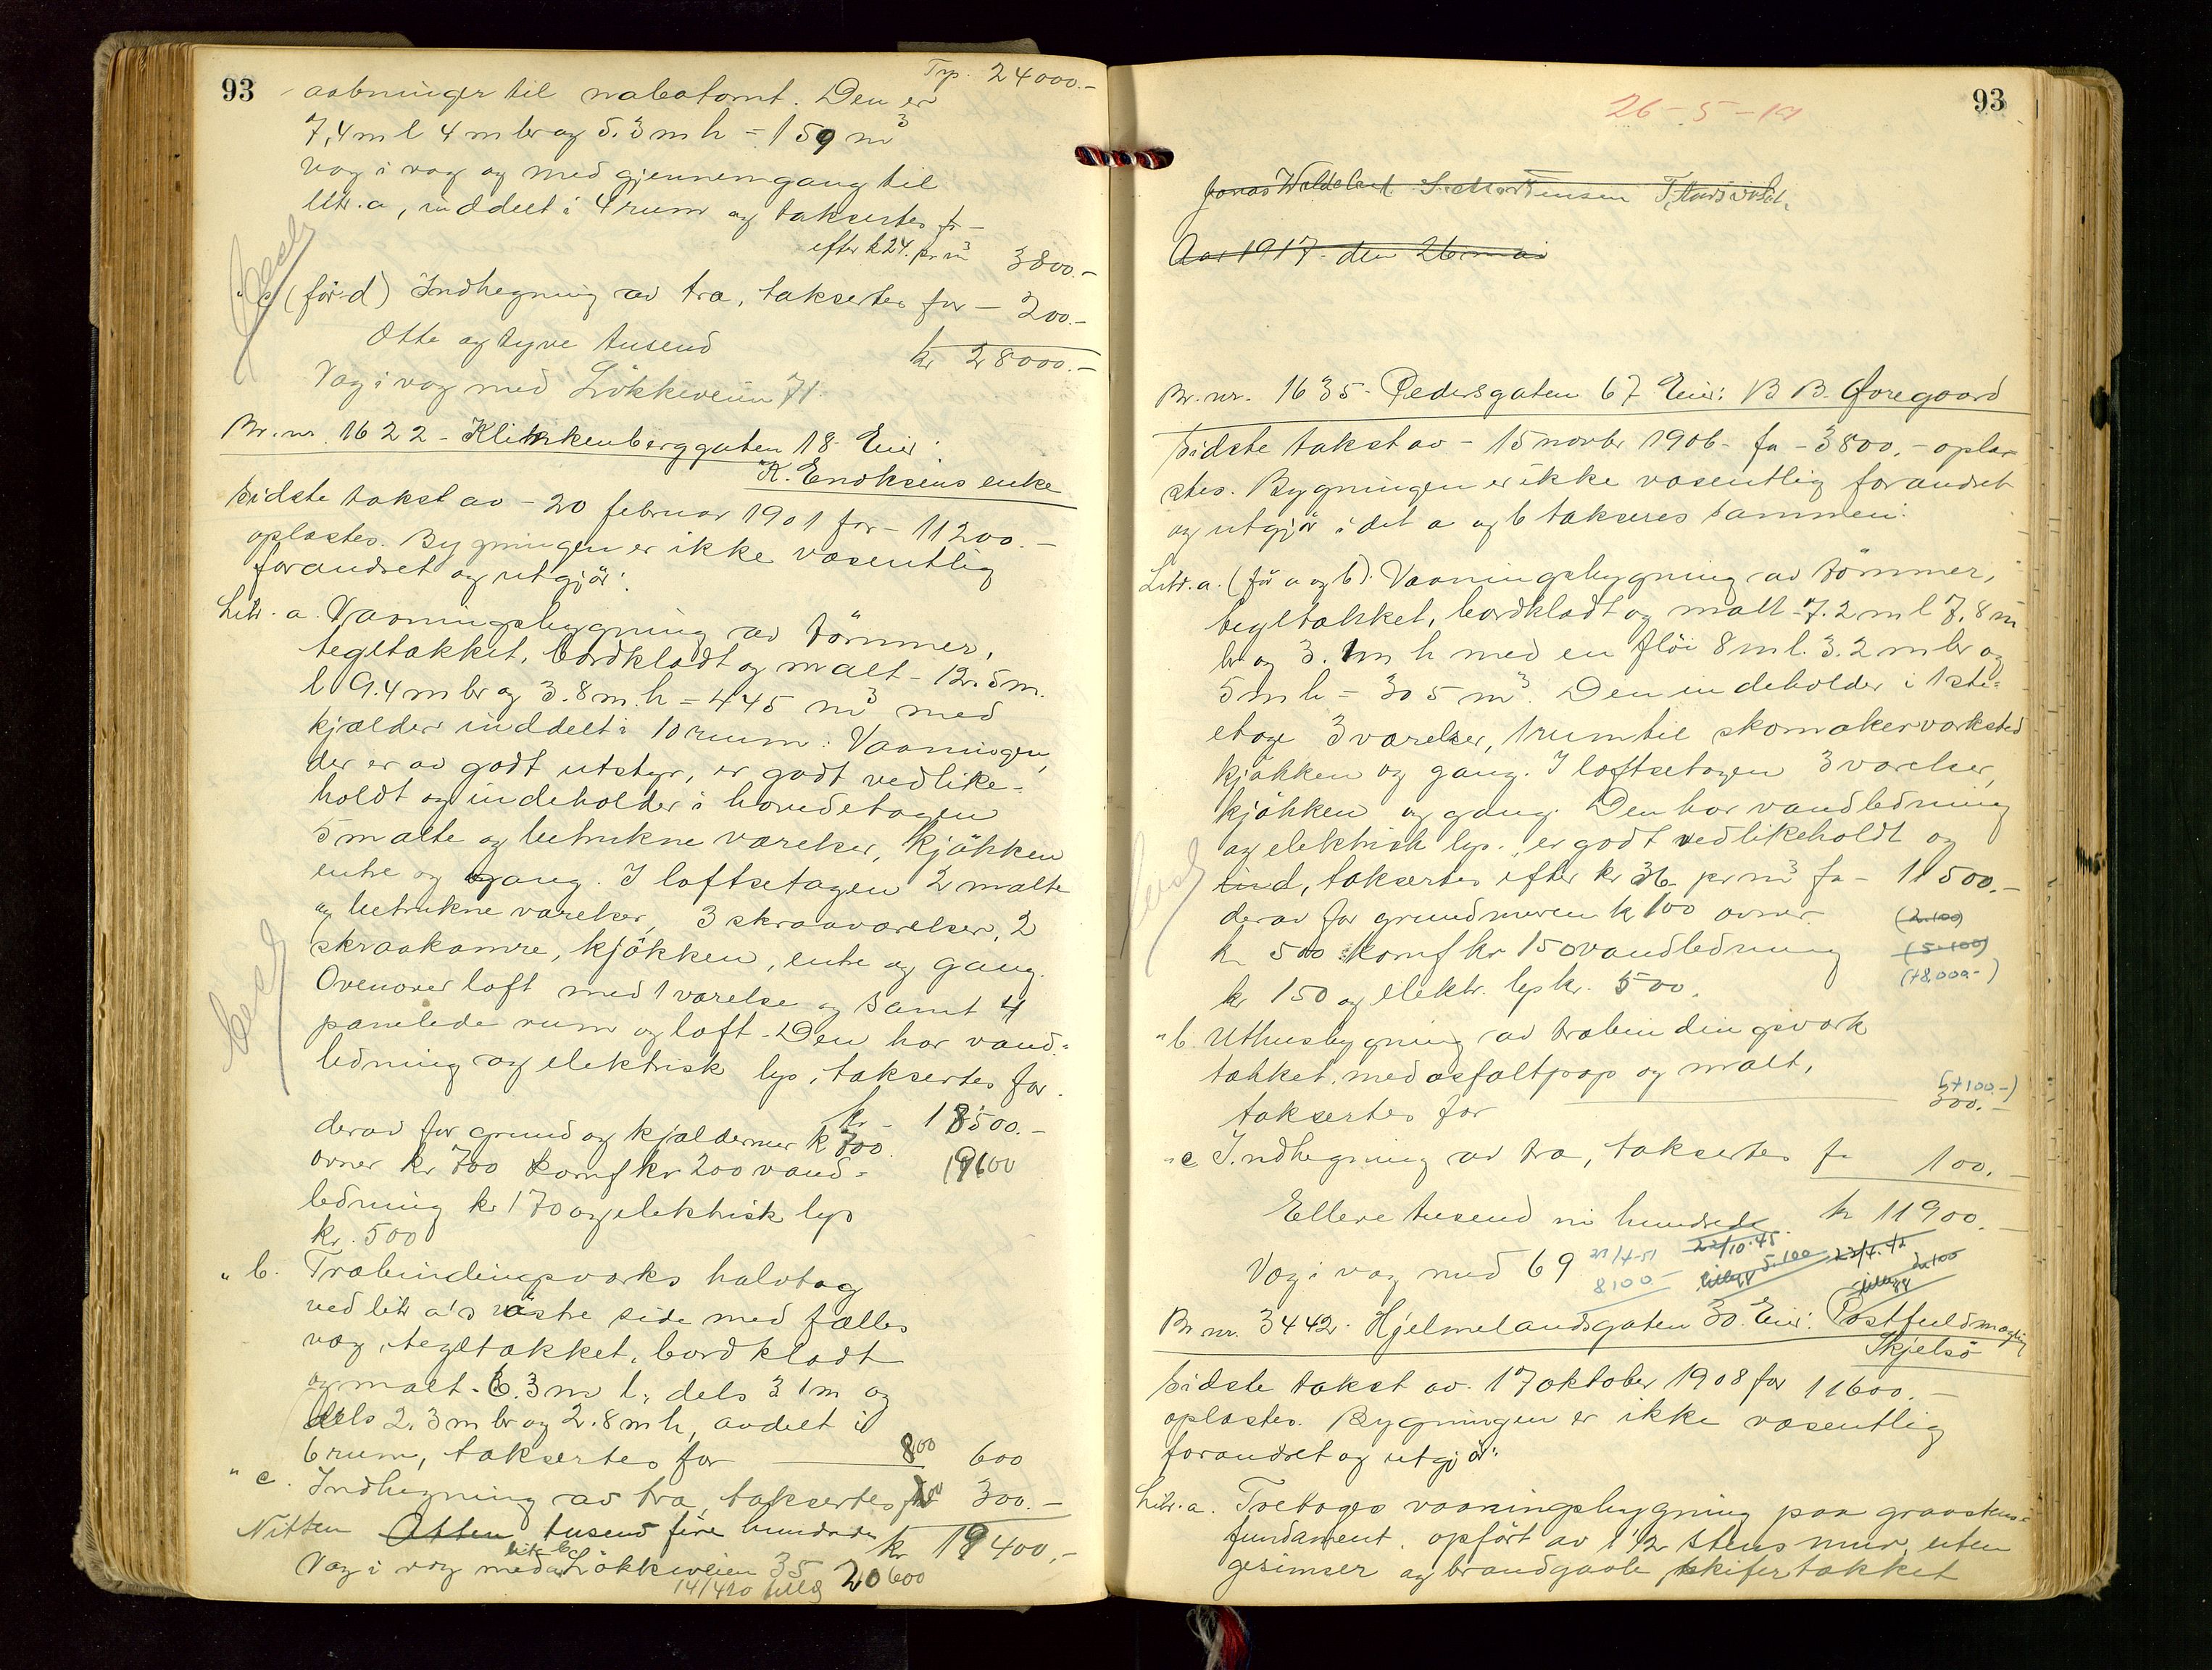 93
Trp. 24000.-
aabninger til nabotomt. Den er
7,4 m l 4 m br og 5.3 m h = 159 m³
væg i væg og med gjennemgang til
litr. a, inddelt i 4 rum og takseres fr -
efter k 24. pr m³ 3800.-
" c (för d) Indhegning av træ, takseres for - 200.-
Otte og tyve tusend kr 28000.-
Væg i væg med Lökkeveien 71.
Br. nr. 1622 - Klinkenberggaten 18 Eier:
K. Enoksens enke
Sidste takst av - 20 februar 1901 for - 11200.-
oplæstes. Bygningen er ikke væsentlig
forandret og utgjör:
Litr. a. Vaaningsbygning av tömmer,
tegltækket, bordklædt og malt - 12.5 m.
l 9.4 m br og 3.8 m. h = 445 m³ med
kjælder inddelt i 10 rum. Vaaningen,
der er av godt utstyr, er godt vedlike-
holdt og indeholder i hovedetagen
5 malte og betrukne værelser, kjökken
entre og gang. I loftsetagen 2 malte
og betrukne værelser, 3 skraaværelser, 2
skraakamre, kjökken, entre og gang.
Ovenover loft med 1 værelse og samt 4
panelede rum og loft. Den har vand-
ledning og elektrisk lys, takseres for
kr - 18500.-
derav for grund og kjældermur k 700.
ovner kr 700 komf kr 200 vand- 19600
ledning kr 170 og elektrisk lys
kr. 500
" b. Træbindingsverks halvtag
ved litr a's västre side med fælles
væg, tegltækket, bordklædt
og malt. 6.3 m l., dels 3 1 m og
dels 2.3 m br og 2.8 m h, avdelt i
6 rum, takseres for 800 600
" c. Indhegning av træ, takseres for 300.-
Nitten Atten tusend fire hundrede kr 19400,-
Væg i væg med Lökkeveien 35 20600
14/4 20 tillæg
93
26-5-19
S. Mortensen
Aar 1917 den 26 mai
Br. nr. 1635 - Pedersgaten 67 Eier: B B. Øregaard
Sidste takst av - 15 novbr 1906 - for - 3800,- oplæ-
stes. Bygningen er ikke væsentlig forandret
og utgjör i det a og b takseres sammen:
Litr. a. (för a og b). Vaaningsbygning av tömmer,
tegltækket, bordklædt og malt - 7.2 m l 7,8 m
br og 3.1 m h med en flöi 8 m l. 3.2 m br og
5 m h = 305 m³. Den indeholder i 1ste-
etage 3 værelser, 1 rum til skomakerverksted
kjökken og gang. I loftsetagen 3 værelser,
kjökken og gang. Den har vandledning
og elektrisk lys, er godt vedlikeholdt og
ind, takseres efter kr 36 pr m³ fr - 11500.-
derav for grundmuren k 100 ovner (2.100)
kr 500 komf kr 150 vandledning (5.100)
kr 150 og elektr. lys kr. 500. (+8,000-)
" b. Uthusbygning av træbindingsverk
tækket, med asfaltpap og malt,
(+100.-)
takseres for 300.-
" c Indhegning av træ, takseres fr 100.-
Elleve tusend ni hundrede. kr 11900.-
Væg i væg med 69 8100- 22/10-45 tillegg 5.100 23/4.42 tillegg 2.100
Br nr. 3442. Hjelmelandsgaten 30. Eier: Postfuldmægtig
Skjelsö
Sidste takst av. 17 oktober 1908 for 11600.-
oplæstes. Bygningen er ikke væsentlig
forandret og utgjör:
Litr. a. Toetages vaaningsbygning paa graastens-
fundament, opfört av 1 1/2 stens mur, uten
gesimser og brandgavle, skifertækket